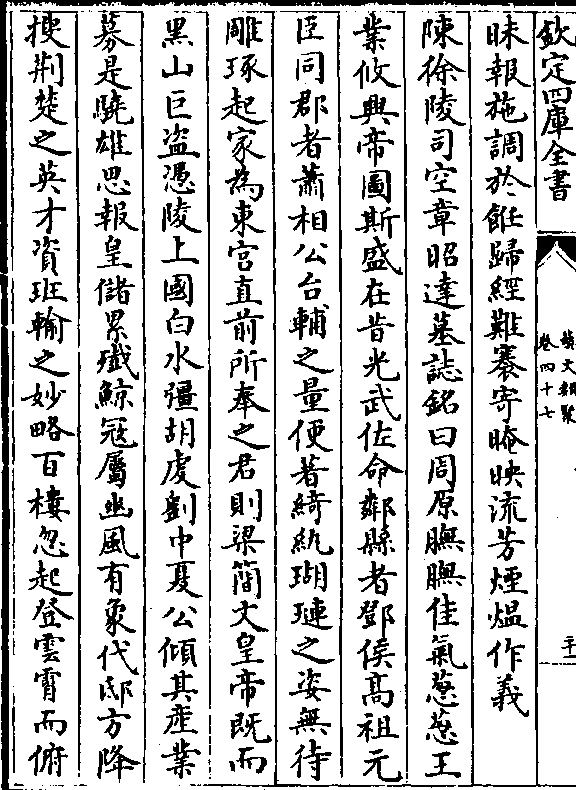 欽定四庫全書
藝文類聚
卷四十七
二十一
昧報施調於餁歸經難褰寄晻映流芳煙熅作義
陳徐陵司空章昭達墓誌銘曰周原膴膴佳氣葱葱王
業攸興帝圖斯盛在昔光武佐命鄰縣者鄧侯高祖元
臣同郡者蕭相公台輔之量便著綺紈瑚璉之姿無待
雕琢起家為東宮直前所奉之君則梁簡文皇帝既而
黑山巨盜憑陵上國白水彊胡虔劉中夏公傾其產業
募是驍雄思報皇儲累殲鯨冦屬豳風有象代邸方降
搜荆楚之英才資班輸之妙略百樓忽起登雲霄而俯